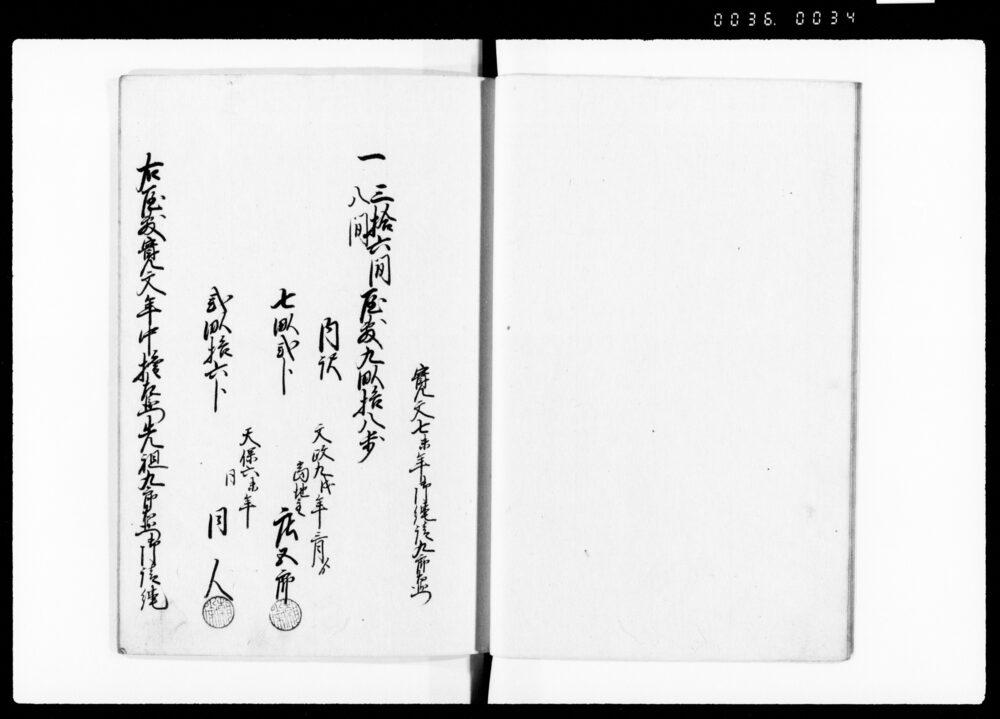 0036. 0034
寛文七未年御縄請九郎
一 三拾六間
八間
屋敷九畝拾八歩
内訳
七畝弐卜
文政九戌年
当地主
庄五郎
弐畝拾六卜
天保六未年
同
同人
右屋敷寛文年中 先祖九郎 御請縄